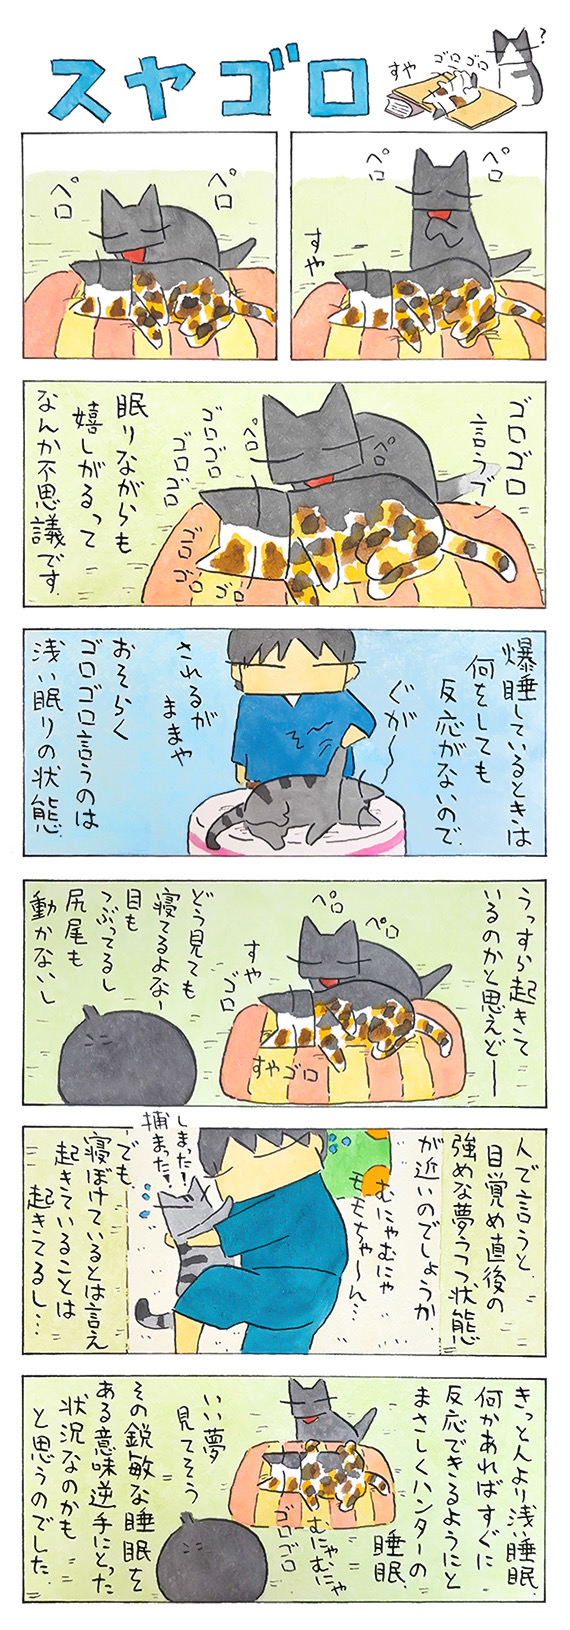 スヤゴロ
すや
ゴロ
ゴロ
ゴロ
?
ペロ
ペロ
すや
ペロ
ペロ
ゴロゴロ
言うゴン
ペロ
ペロ
ゴロゴロ
ゴロゴロ
ゴロ
ゴロ
ゴロ
眠りながらも
嬉しがるって
なんか不思議です.
爆睡しているときは
何をしても
反応がないので.
ぐがー
されるが
ままや
おそらく
ゴロゴロ言うのは
浅い眠りの状態.
うっすら起きて
いるのかと思えどー
ペロ
ペロ
すや
ゴロ
すやゴロ
どう見ても
寝てるよなー
目も
つぶってるし
尻尾も
動かないし
人で言うと
目覚め直後の
強めな夢うつつ状態
が近いのでしょうか.
むにゃむにゃ
モモちゃ〜ん…
しまった!
捕まった!
でも
寝ぼけているとは言え
起きていることは
起きてるし…
きっと人より浅い睡眠.
何かあればすぐに
反応できるようにと
まさしくハンターの
睡眠.
むにゃむにゃ
ゴロゴロ
いい夢
見てそう
その鋭敏な睡眠を
ある意味逆手にとった
状況なのかも
と思うのでした.